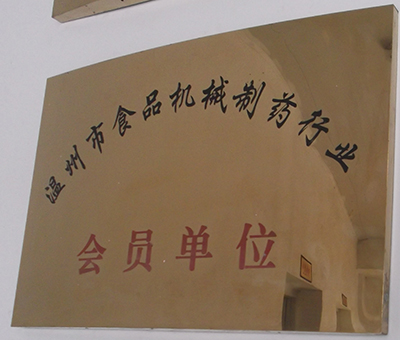 温州市食品机械制药行业
会员单位